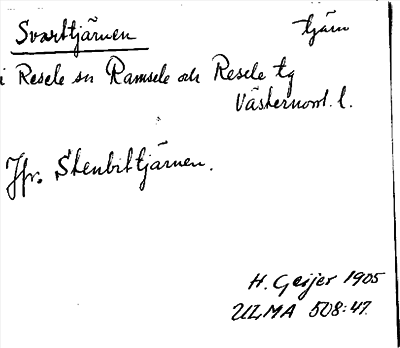 Svarttjärnen tjärn
i Resele sn Ramsele och Resele tg
Västernorrl. l.
Jfr. Stenbittjärnen.
H. Geijer 1905
ULMA 508:47.